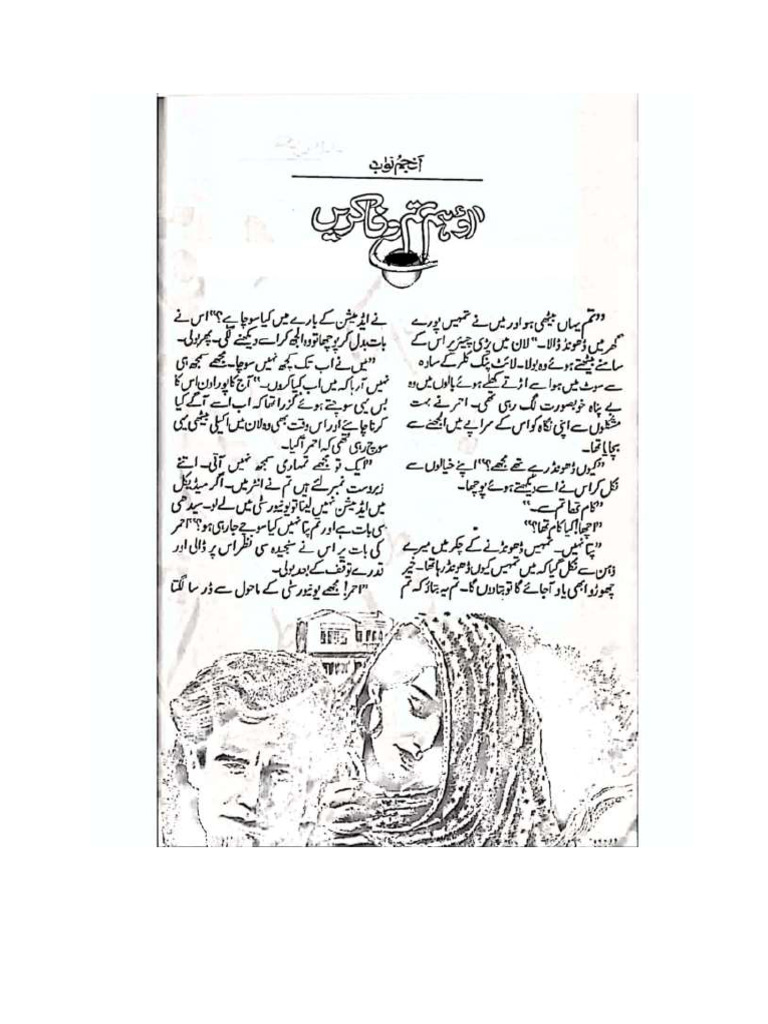 انجم نواب
آؤ ہم تم وفا کریں
”تم یہاں بیٹھی ہو اور میں نے تمہیں پورے
گھر میں ڈھونڈ ڈالا۔“ لان میں پڑی چیئر پر اس کے
سامنے بیٹھتے ہوئے وہ بولا۔ لائٹ پنک کلر کے سادہ
سے سوٹ میں ہوا سے اڑتے کھلے ہوئے بالوں میں وہ
بے پناہ خوبصورت لگ رہی تھی۔ احمر نے بہت
مشکلوں سے اپنی نگاہ کو اس کے سراپے میں الجھنے سے
بچایا تھا۔
”کیوں ڈھونڈ رہے تھے مجھے؟“ اپنے خیالوں سے
نکل کر اس نے اسے دیکھتے ہوئے پوچھا۔
”کام تھا تم سے۔“
”اچھا! کیا کام تھا؟“
”پتا نہیں۔ تمہیں ڈھونڈنے کے چکر میں میرے
ذہن سے نکل گیا کہ میں تمہیں کیوں ڈھونڈ رہا تھا۔ خیر
چھوڑو ابھی یاد آجائے گا تو بتا دوں گا۔ تم یہ بتاؤ کہ تم
نے ایڈمیشن کے بارے میں کیا سوچا ہے؟“ اس نے
بات بدل کر پوچھا تو وہ الجھ کر اسے دیکھنے لگی۔ پھر بولی۔
”میں نے اب تک کچھ نہیں سوچا۔ مجھے سمجھ ہی
نہیں آ رہا کہ میں اب کیا کروں۔“ آج کا پورا دن اس کا
بس یہی سوچتے ہوئے گزرا تھا کہ اب اسے آگے کیا
کرنا چاہئے اور اس وقت بھی وہ لان میں اکیلی بیٹھی یہی
سوچ رہی تھی کہ احمر آ گیا۔
”ایک تو مجھے تمہاری سمجھ نہیں آتی۔ اتنے
زبردست نمبر لئے ہیں تم نے انٹر میں۔ اگر میڈیکل
میں ایڈمیشن نہیں لینا تو یونیورسٹی میں لے لو۔ سیدھی
سی بات ہے اور تم پتا نہیں کیا سوچے جا رہی ہو؟“ احمر
کی بات پر اس نے سنجیدہ سی نظر اس پر ڈالی اور
قدرے توقف کے بعد بولی۔
”احمر! مجھے یونیورسٹی کے ماحول سے ڈر سا لگتا